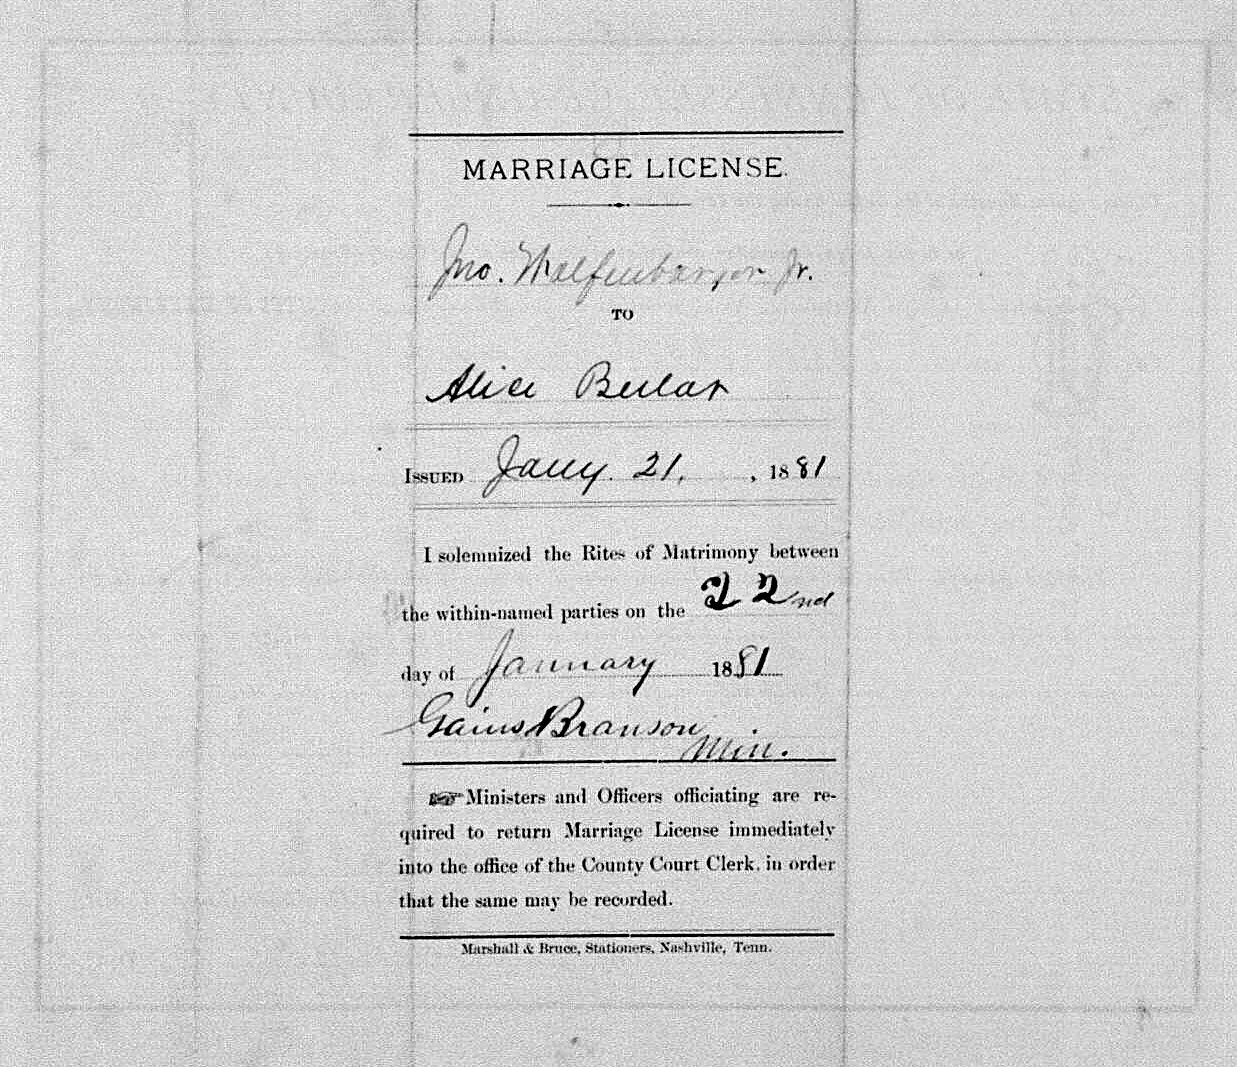 MARRIAGE LICENSE.
Jno. Wolfenbarger Jr.
TO
Alice Beelar
ISSUED Jany. 21, , 1881
I solemnized the Rites of Matrimony between
the within-named parties on the 22nd
day of January 1881
Gains Branson
Min.
☞ Ministers and Officers officiating are re-
quired to return Marriage License immediately
into the office of the County Court Clerk, in order
that the same may be recorded.
Marshall & Bruce, Stationers, Nashville, Tenn.